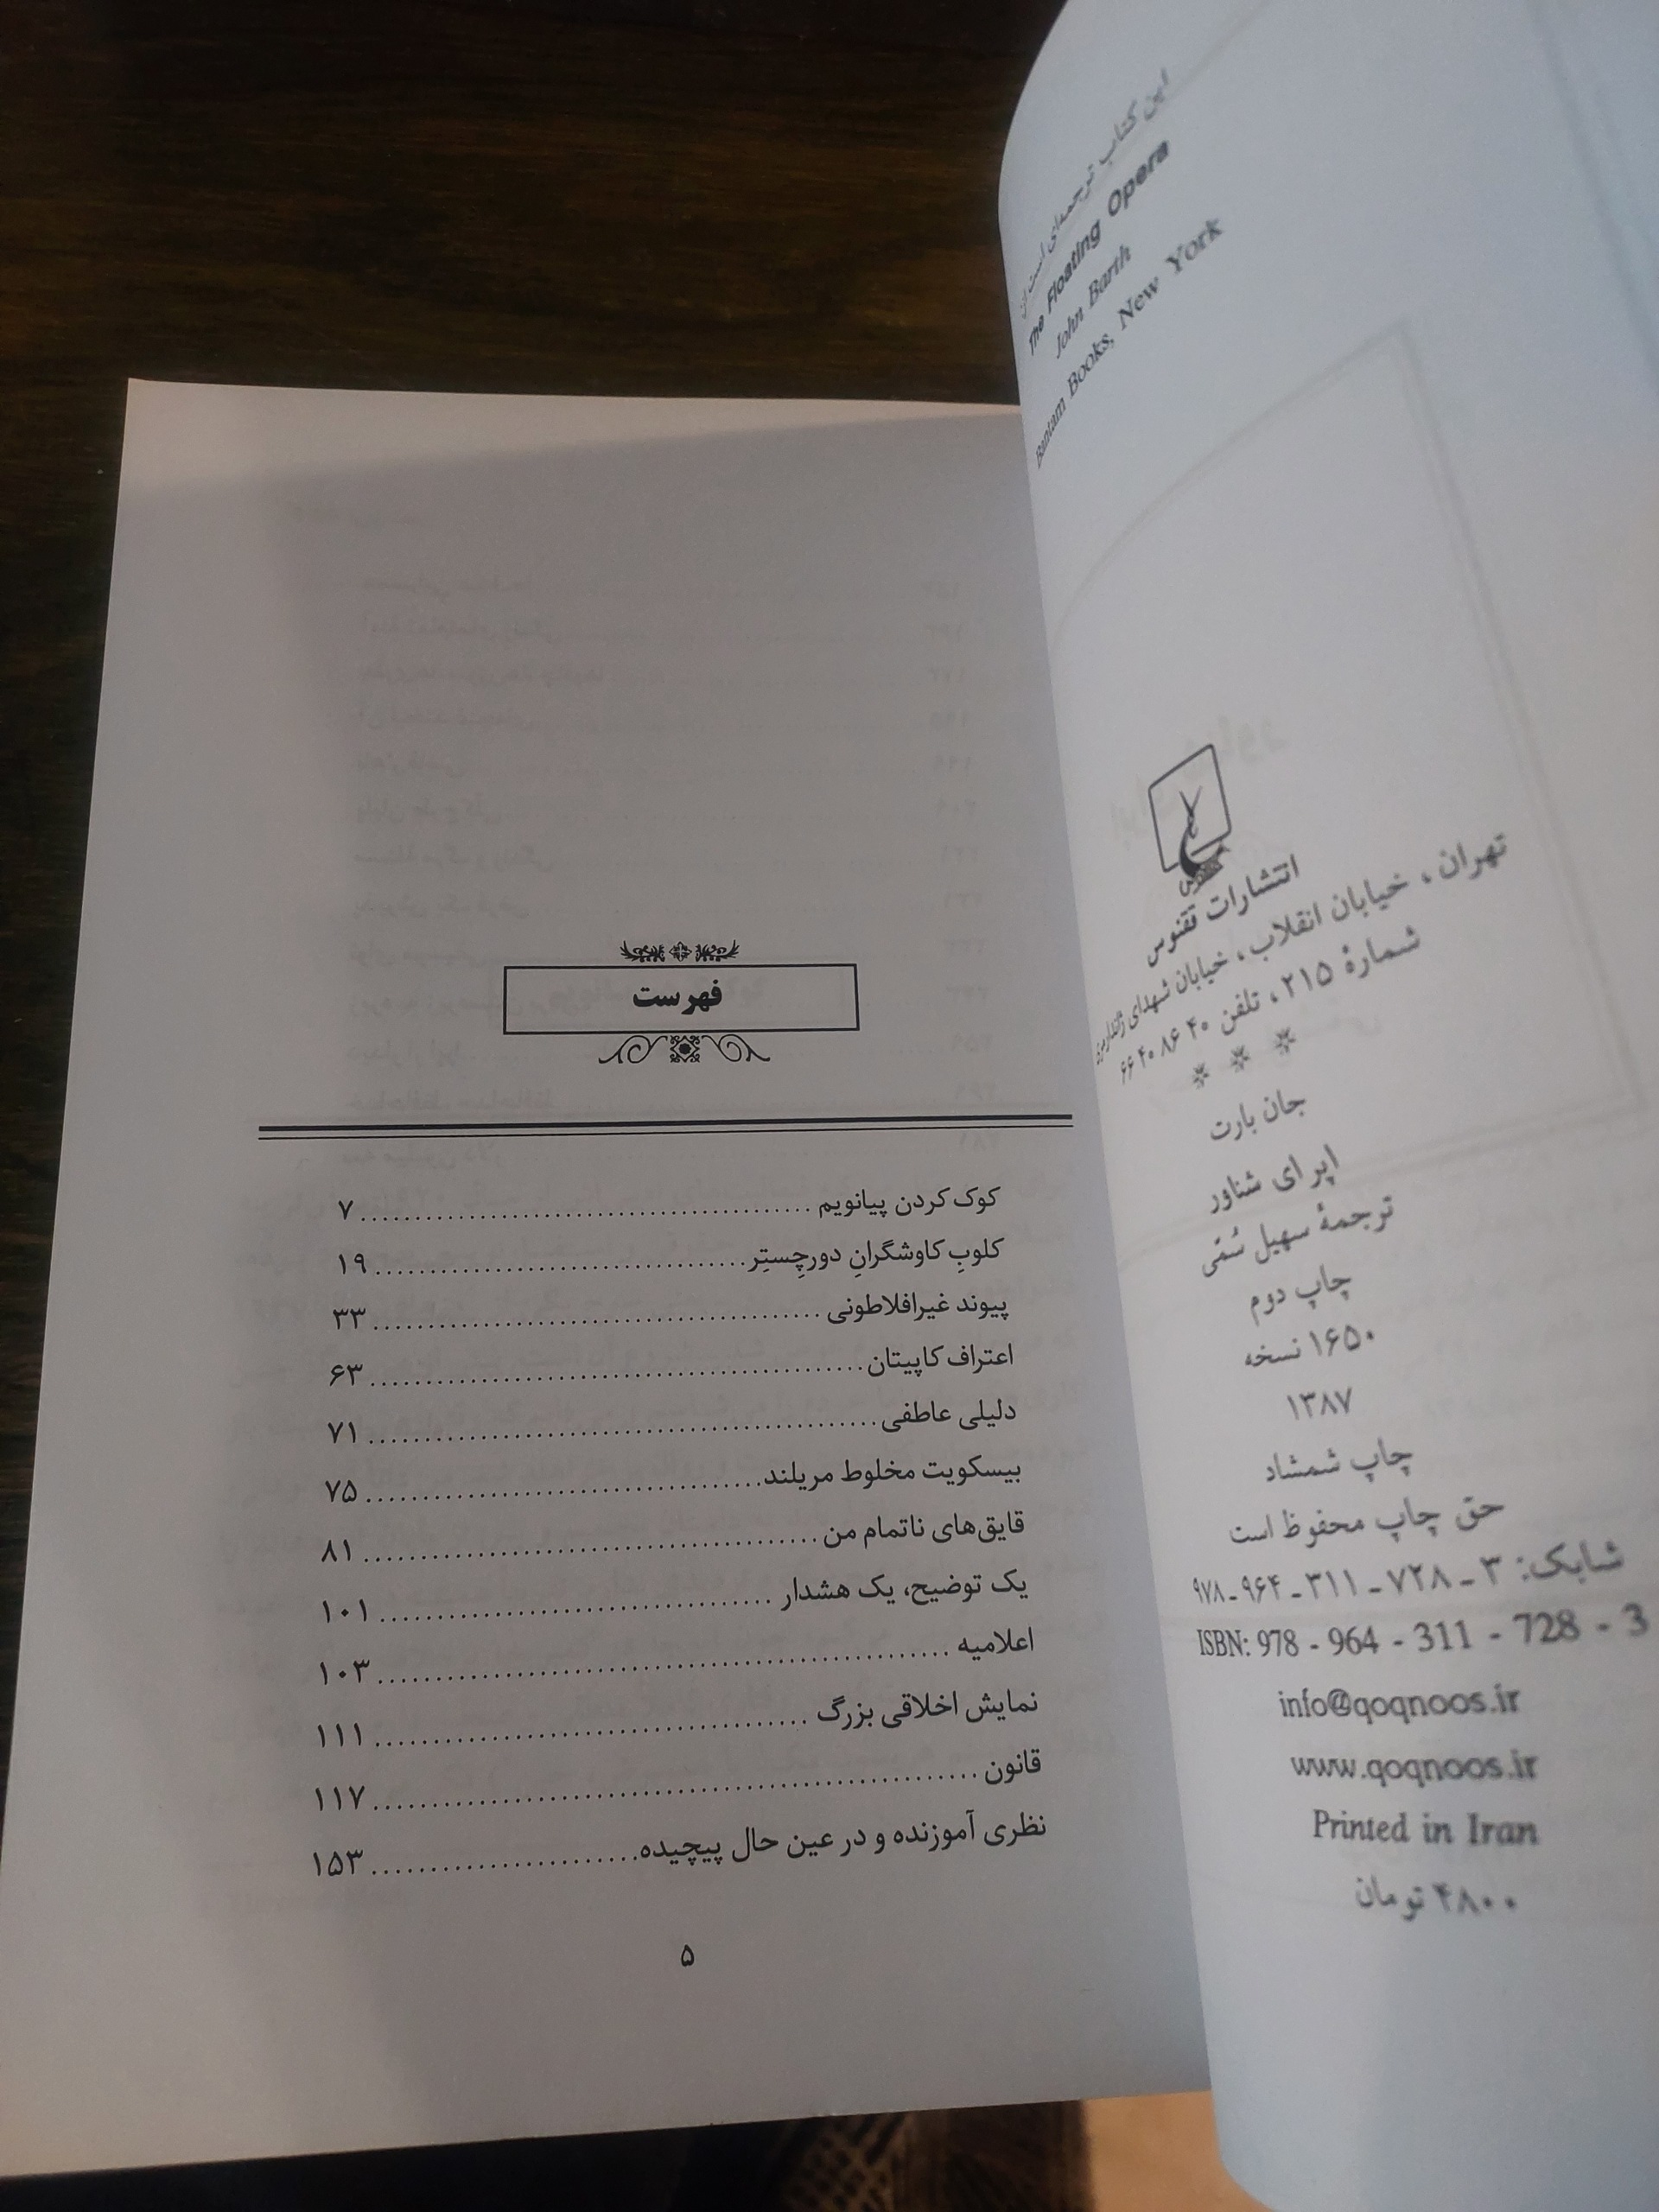 این کتاب ترجمه‌ای است از:
The Floating Opera
John Barth
Bantam Books, New York
انتشارات ققنوس
تهران، خیابان انقلاب، خیابان شهدای ژاندارمری
شمارهٔ ۲۱۵، تلفن ۴۰ ۸۶ ۴۰ ۶۶
* * *
جان بارت
اپرای شناور
ترجمهٔ سهیل سُمّی
چاپ دوم
۱۶۵۰ نسخه
۱۳۸۷
چاپ شمشاد
حق چاپ محفوظ است
شابک: ۳ ـ ۷۲۸ ـ ۳۱۱ ـ ۹۶۴ ـ ۹۷۸
ISBN: 978 - 964 - 311 - 728 - 3
info@qoqnoos.ir
www.qoqnoos.ir
Printed in Iran
۴۸۰۰ تومان
فهرست
کوک کردن پیانویم ........ ۷
کلوبِ کاوشگرانِ دورچِستِر ........ ۱۹
پیوند غیرافلاطونی ........ ۳۳
اعتراف کاپیتان ........ ۶۳
دلیلی عاطفی ........ ۷۱
بیسکویت مخلوط مریلند ........ ۷۵
قایق‌های ناتمام من ........ ۸۱
یک توضیح، یک هشدار ........ ۱۰۱
اعلامیه ........ ۱۰۳
نمایش اخلاقی بزرگ ........ ۱۱۱
قانون ........ ۱۱۷
نظری آموزنده و در عین حال پیچیده ........ ۱۵۳
۵